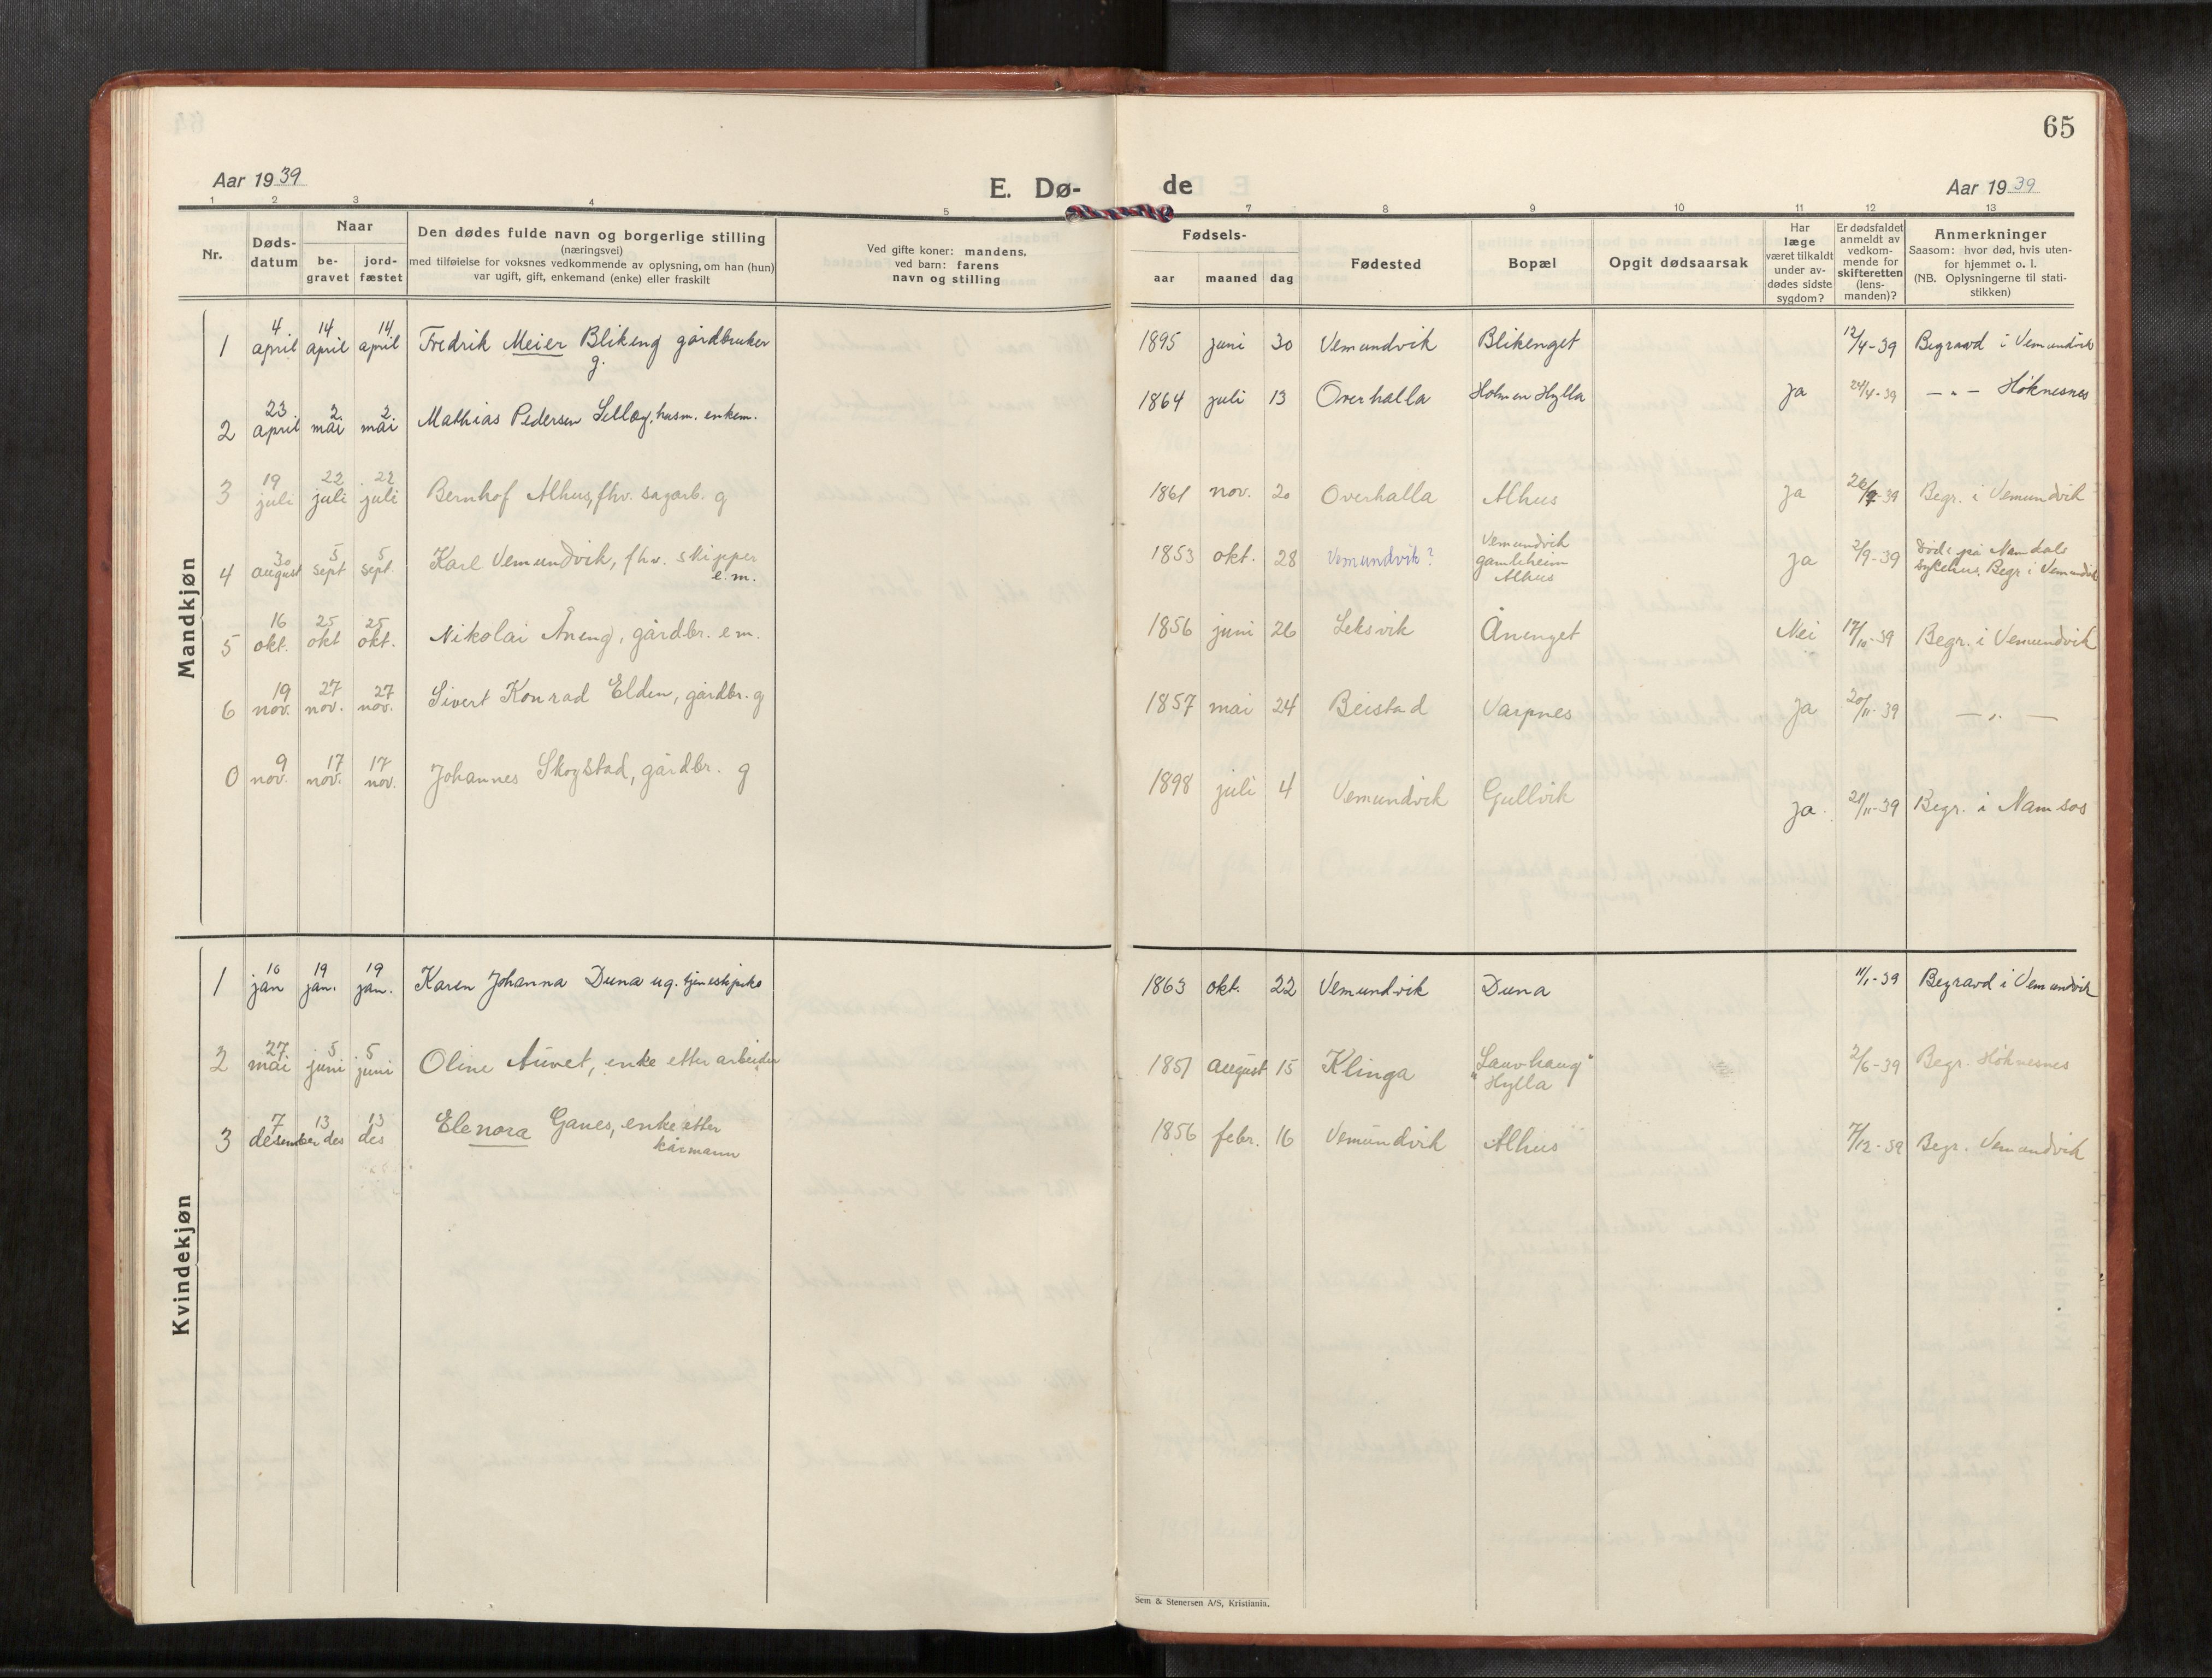 65
Aar 1939
E. Dø-
de
Aar 1939
1 2 3 4 5 7 8 9 10 11 12 13
Nr.
Døds-
datum
Naar
be-
gravet
jord-
fæstet
Den dødes fulde navn og borgerlige stilling
(næringsvei)
med tilføielse for voksnes vedkommende av oplysning, om han (hun)
var ugift, gift, enkemand (enke) eller fraskilt
Ved gifte koner: mandens,
ved barn: farens
navn og stilling
Fødsels-
aar maaned dag
Fødested
Bopæl
Opgit dødsaarsak
Har
læge
været tilkaldt
under av-
dødes sidste
sygdom?
Er dødsfaldet
anmeldt av
vedkom-
mende for
skifteretten
(lens-
manden)?
Anmerkninger
Saasom: hvor død, hvis uten-
for hjemmet o. l.
(NB. Oplysningerne til stati-
stikken)
Mandkjøn
1 4. april 14. april 14. april Fredrik Meier Blikeng gårdbruker g. 1895 juni 30 Vemundvik Blikenget 12/4-39 Begravd i Vemundvik
2 23. april 2. mai 2. mai Mathias Pedersen husm. enkem. 1864 juli 13 Overhalla Holmen Hylla ja 24/4-39 — " — Høknesnes
3 19 juli 22 juli 22 juli Bernhof Alhus, fhv. sagarb. g 1861 nov. 20 Overhalla Alhus ja -39 Begr. i Vemundvik
4 30 august 5 sept 5 sept. Karl Vemundvik, fhv. skipper
e.m. 1853 okt. 28 Vemundvik? Vemundvik
gamleheim
Alhus ja 2/9-39 Død på Namdals
sykehus. Begr. i Vemundvik
5 16 okt. 25 okt 25 okt. Nikolai Åneng, gårdbr. e m. 1856 juni 26 Leksvik Ånenget Nei 17/10-39 Begr. i Vemundvik
6 19 nov. 27 nov. 27 nov. Sivert Konrad Elden, gårdbr. g 1857 mai 24 Beistad Varpnes ja 20/11-39 — " —
0 9 nov. 17 nov. 17 nov. Johannes Skogstad, gårdbr. g 1898 juli 4 Vemundvik Gullvik ja 21/11-39 Begr. i Namsos
Kvindekjøn
1 10 jan 19 jan. 19 jan. Karen Johanna Duna ug. tjenestepike 1863 okt. 22 Vemundvik Duna 11/1-39 Begravd i Vemundvik
2 27 mai 5 juni 5 juni Oline Auvet, enke etter arbeider 1851 august 15 Klinga Lauvhaug"
"Hylla 2/6-39 Begr. Høknesnes
3 7 desember 13 des 13 des Elenora Ganes, enke etter
kårmann 1856 febr. 16 Vemundvik Alhus 7/12-39 Begr. Vemundvik
Sem & Stenersen A/S, Kristiania.